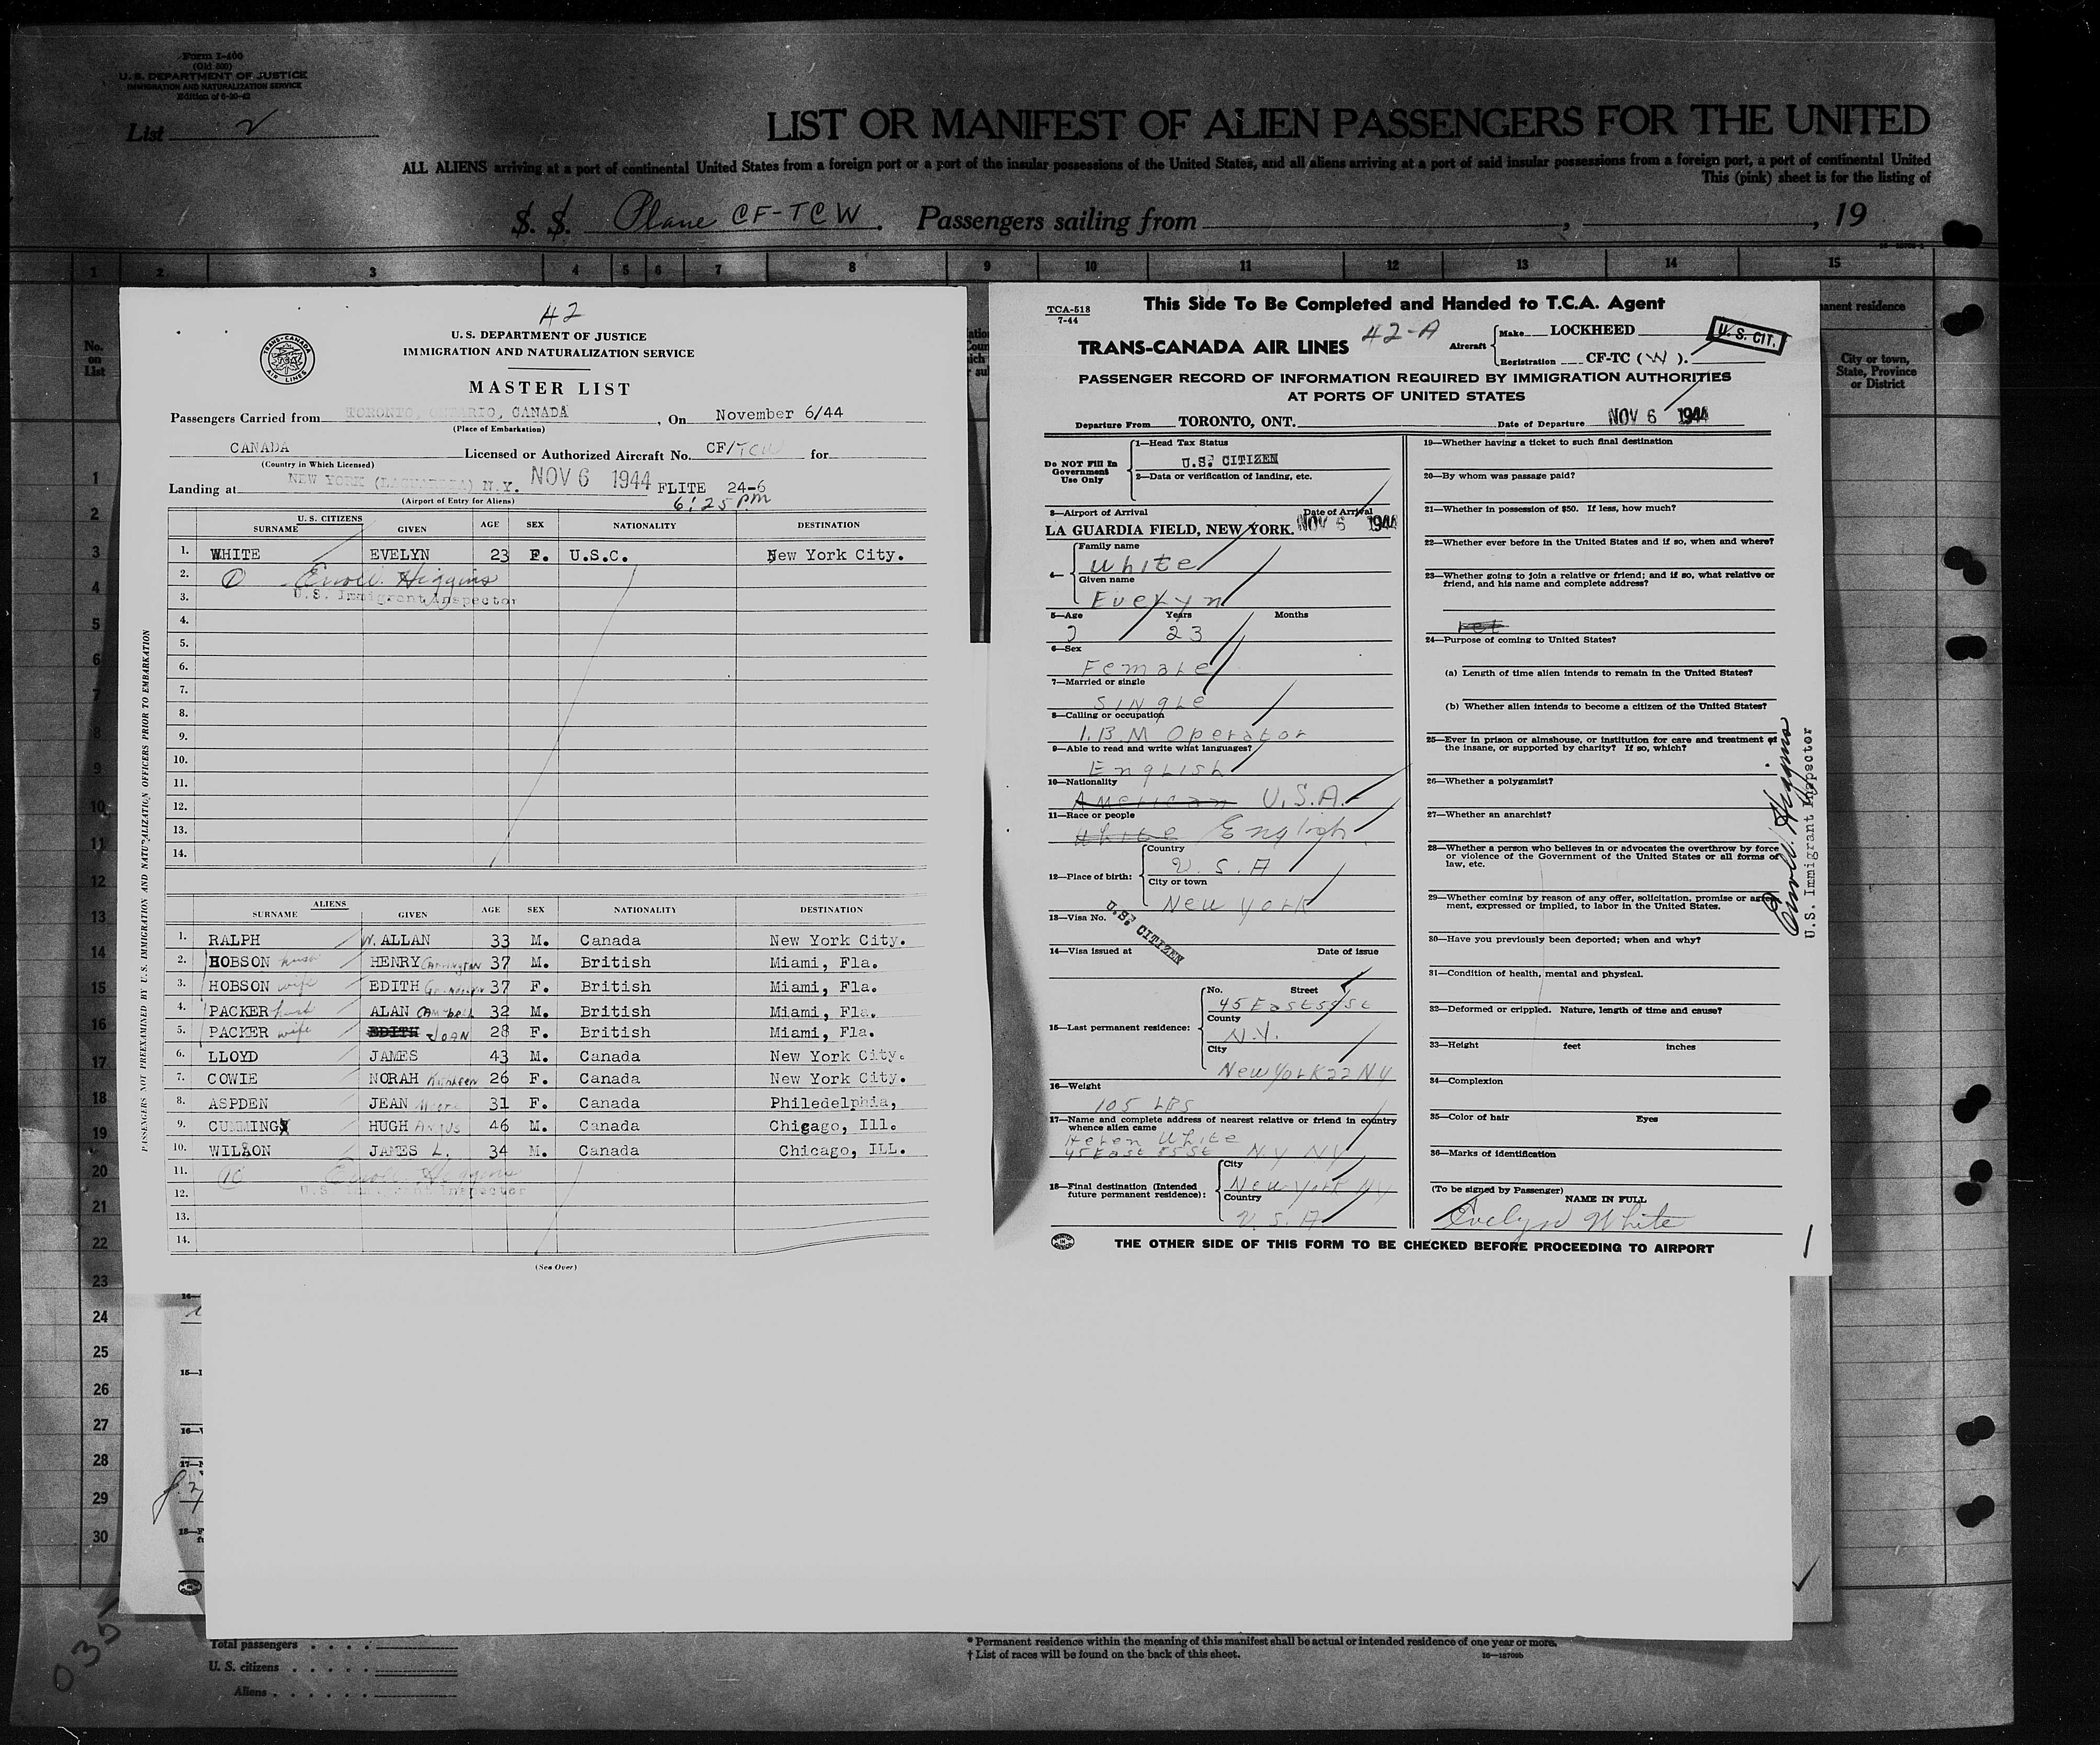 Form I-400
(Old 500)
U. S. DEPARTMENT OF JUSTICE
IMMIGRATION AND NATURALIZATION SERVICE
Edition of 6-20-42
List 2
LIST OR MANIFEST OF ALIEN PASSENGERS FOR THE UNITED
ALL ALIENS arriving at a port of continental United States from a foreign port or a port of the insular possessions of the United States, and all aliens arriving at a port of said insular possessions from a foreign port, a port of continental United
This (pink) sheet is for the listing of
S. S. Plane CF-TCW. Passengers sailing from , , 19
1 2 3 4 5 6 7 8 9 10 11 12 13 14 15
No.
on
List
1
2
3
4
5
6
7
8
9
10
11
12
13
14
15
16
17
18
19
20
21
22
23
24
25
26
27
28
29
30
42
TRANS-CANADA AIR LINES
U.S. DEPARTMENT OF JUSTICE
IMMIGRATION AND NATURALIZATION SERVICE
MASTER LIST
Passengers Carried from TORONTO, ONTARIO, CANADA, On November 6/44
(Place of Embarkation)
CANADA Licensed or Authorized Aircraft No. CF/TCW for
(Country in Which Licensed)
Landing at NEW YORK (LAGUARDIA) N.Y. NOV 6 1944 FLITE 24-6
(Airport of Entry for Aliens) 6:25 PM
U. S. CITIZENS
SURNAME GIVEN AGE SEX NATIONALITY DESTINATION
1. WHITE EVELYN 23 F. U.S.C. New York City.
2. 1 Errol. Higgins
3. U.S. Immigrant Inspector
4.
5.
6.
7.
8.
9.
10.
11.
12.
13.
14.
ALIENS
SURNAME GIVEN AGE SEX NATIONALITY DESTINATION
1. RALPH W. ALLAN 33 M. Canada New York City.
2. HOBSON husb HENRY CARRINGTON 37 M. British Miami, Fla.
3. HOBSON wife EDITH 37 F. British Miami, Fla.
4. PACKER husb ALAN Campbell 32 M. British Miami, Fla.
5. PACKER wife EDITH JOAN 28 F. British Miami, Fla.
6. LLOYD JAMES 43 M. Canada New York City.
7. COWIE NORAH Kathleen 26 F. Canada New York City.
8. ASPDEN JEAN Moore 31 F. Canada Philedelphia,
9. CUMMING HUGH ANGUS 46 M. Canada Chicago, Ill.
10. WILSON JAMES L. 34 M. Canada Chicago, ILL.
11. 10 Errol Higgins
12. U.S. Immigrant Inspector
13.
14.
(See Over)
PASSENGERS NOT PREEXAMINED BY U.S. IMMIGRATION AND NATURALIZATION OFFICERS PRIOR TO EMBARKATION
TCA-518
7-44
This Side To Be Completed and Handed to T.C.A. Agent
TRANS-CANADA AIR LINES 42-A
Aircraft Make LOCKHEED
Registration CF-TC (W).
U. S. CIT.
PASSENGER RECORD OF INFORMATION REQUIRED BY IMMIGRATION AUTHORITIES
AT PORTS OF UNITED STATES
Departure From TORONTO, ONT. Date of Departure NOV 6 1944
Do NOT Fill In
Government
Use Only
1—Head Tax Status
U.S. CITIZEN
2—Data or verification of landing, etc.
3—Airport of Arrival Date of Arrival
LA GUARDIA FIELD, NEW YORK. NOV 6 1944
4— Family name
White
Given name
Evelyn
5—Age Years Months
23
6—Sex
Female
7—Married or single
Single
8—Calling or occupation
I.B.M Operator
9—Able to read and write what languages?
English
10—Nationality
American U.S.A.
11—Race or people
White English
12—Place of birth: Country
U.S.A
City or town
New York
13—Visa No. U.S. CITIZEN
14—Visa issued at Date of issue
15—Last permanent residence: No. Street
45 East 55 St
County
N.Y.
City
New York 22 NY
16—Weight
105 LBS
17—Name and complete address of nearest relative or friend in country
whence alien came
Helen White
45 East 55 St N.Y NY
18—Final destination (Intended
future permanent residence): City
New York NY
Country
U.S.A
19—Whether having a ticket to such final destination
20—By whom was passage paid?
21—Whether in possession of $50. If less, how much?
22—Whether ever before in the United States and if so, when and where?
23—Whether going to join a relative or friend; and if so, what relative or
friend, and his name and complete address?
24—Purpose of coming to United States?
(a) Length of time alien intends to remain in the United States?
(b) Whether alien intends to become a citizen of the United States?
25—Ever in prison or almshouse, or institution for care and treatment of
the insane, or supported by charity? If so, which?
26—Whether a polygamist?
27—Whether an anarchist?
28—Whether a person who believes in or advocates the overthrow by force
or violence of the Government of the United States or all forms of
law, etc.
29—Whether coming by reason of any offer, solicitation, promise or agree-
ment, expressed or implied, to labor in the United States.
30—Have you previously been deported; when and why?
31—Condition of health, mental and physical.
32—Deformed or crippled. Nature, length of time and cause?
33—Height feet inches
34—Complexion
35—Color of hair Eyes
36—Marks of identification
(To be signed by Passenger)
NAME IN FULL
Evelyn White
THE OTHER SIDE OF THIS FORM TO BE CHECKED BEFORE PROCEEDING TO AIRPORT
Errol. Higgins
U.S. Immigrant Inspector
anent residence
City or town,
State, Province
or District
Total passengers
U. S. citizens
Aliens
* Permanent residence within the meaning of this manifest shall be actual or intended residence of one year or more.
† List of races will be found on the back of this sheet.
035